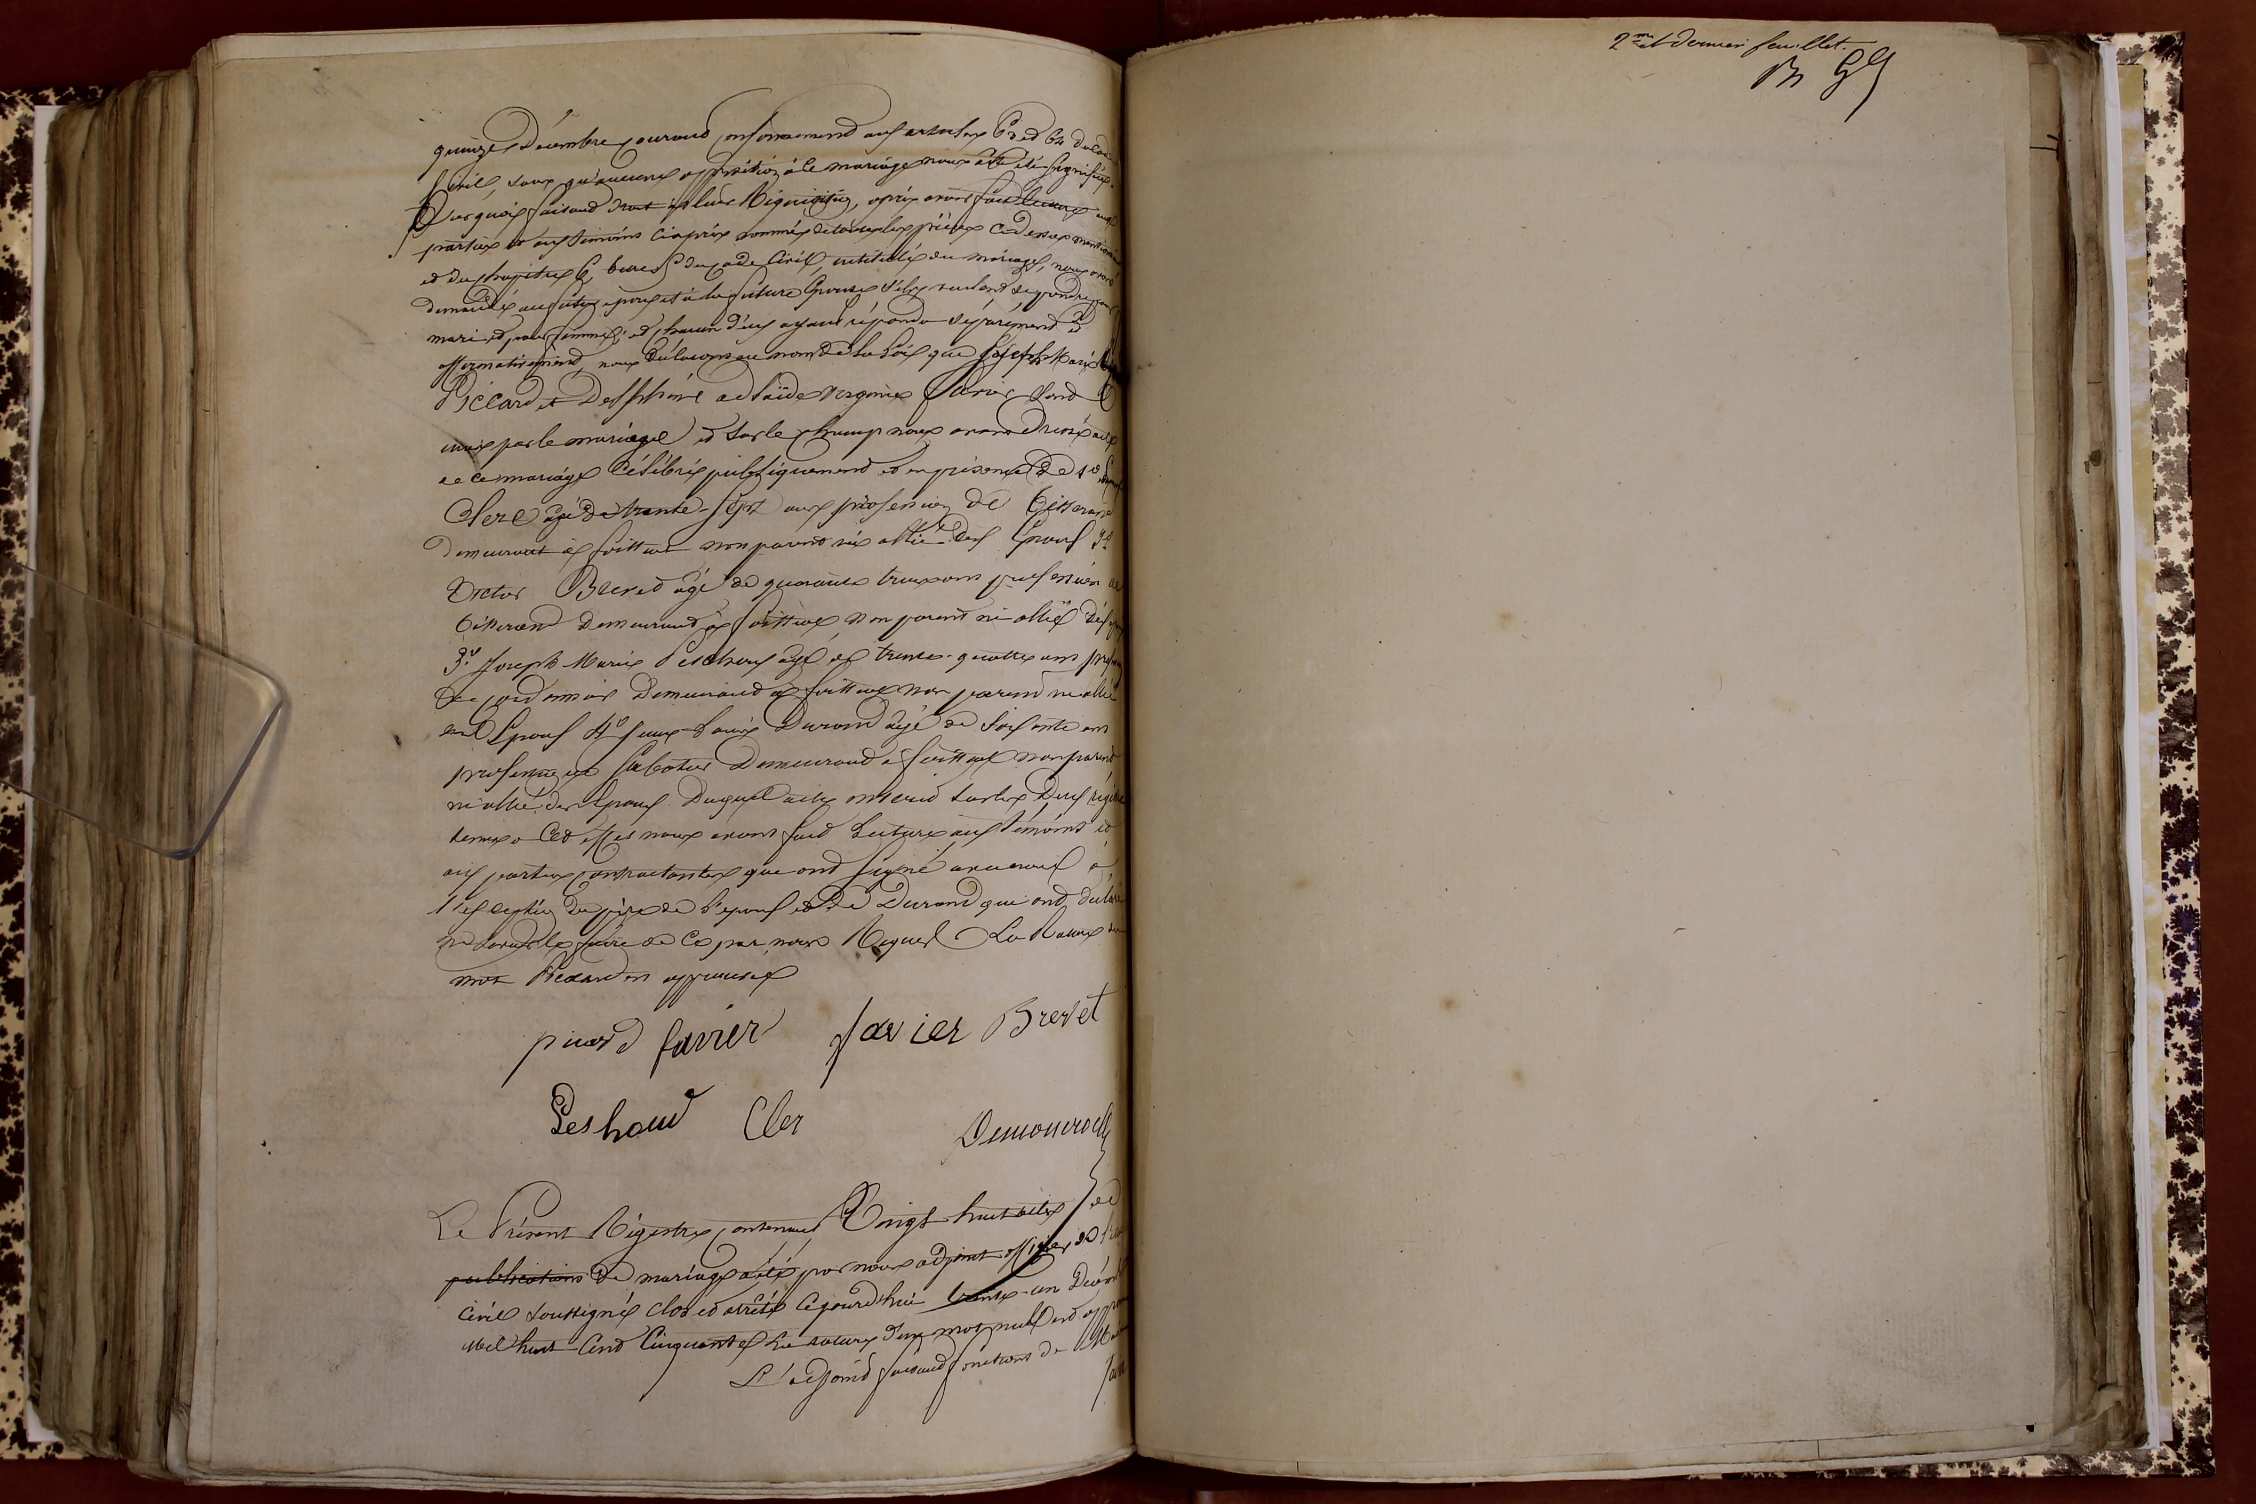 quinze Décembre courant conformément aux articles 63 et 64 du code
Civil, sans qu'aucune opposition à ce mariage nous ait été signifiée.
Pourquoi faisant droit à leur Réquisition, après avoir fait lecture aux
parties et aux témoins ci après nommés de toutes les pièces Ci dessus mentionnées
et du chapitre 6, du code Civil, intitulé du mariage, nous avons
demandé au futur epoux et à la future Epouse s'ils veulent se prendre pour
mari et pour femme; et chacun d'eux ayant répondu séparément et
affirmativement, nous déclarons au nom de la Loi que Joseph Marie
Piccard et Delphine adélaïde virginie favier sont
unis par le mariage et sur le champ nous avons dressé acte
de ce mariage Célébré publiquement et en présence de 1°
Clerc agé de trente-sept ans profession de Tisserand
demeurant à foittone non parent ni allié des Epoux 2°
Victor Brevet agé de quarante trois ans profession de
Tisserand demeurant à foittone non parent ni allié des époux
3° Joseph Marie Peschoux agé de trente-quatre ans profession
de cordonnier demeurant à foittone non parent ni allié
des Epoux 4° jean-Louis Durand agé de soixante ans
profession de Sabotier demeurant à foittone non parent
ni allié des Epoux. Duquel acte inscrit sur les deux régistres
tenus a Cet effet nous avons fait Lecture aux témoins et
aux parties contractantes qui ont signé avec nous à
l'exception du père de l'epoux et de Durand qui ont déclaré
ne savoir le faire de Ce par nous Requis La Rature du
mot Piccard est approuvée
picard favier favier Brevet
Peshoud Cler Demoncroch
Le Présent Régistre contenant Vingt huit actes de
publications de mariage a été par nous adjoint officier de l'état
Civil soussigné clos et arrêté Cejourd'hui trente-un Décembre
Mil huit Cent Cinquante La rature d'un mot nul est approuvée
L'adjoint faisant fonctions de Maire
2me et dernier feuillet.